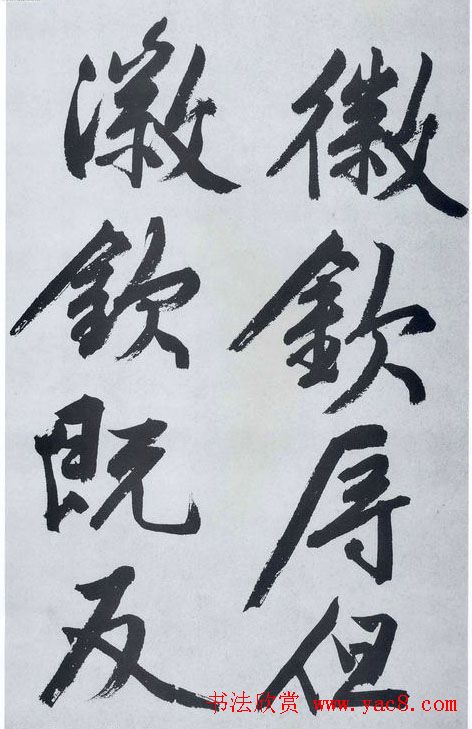 徽欽辱但
徽欽既反
书法欣赏
www.yac8.com